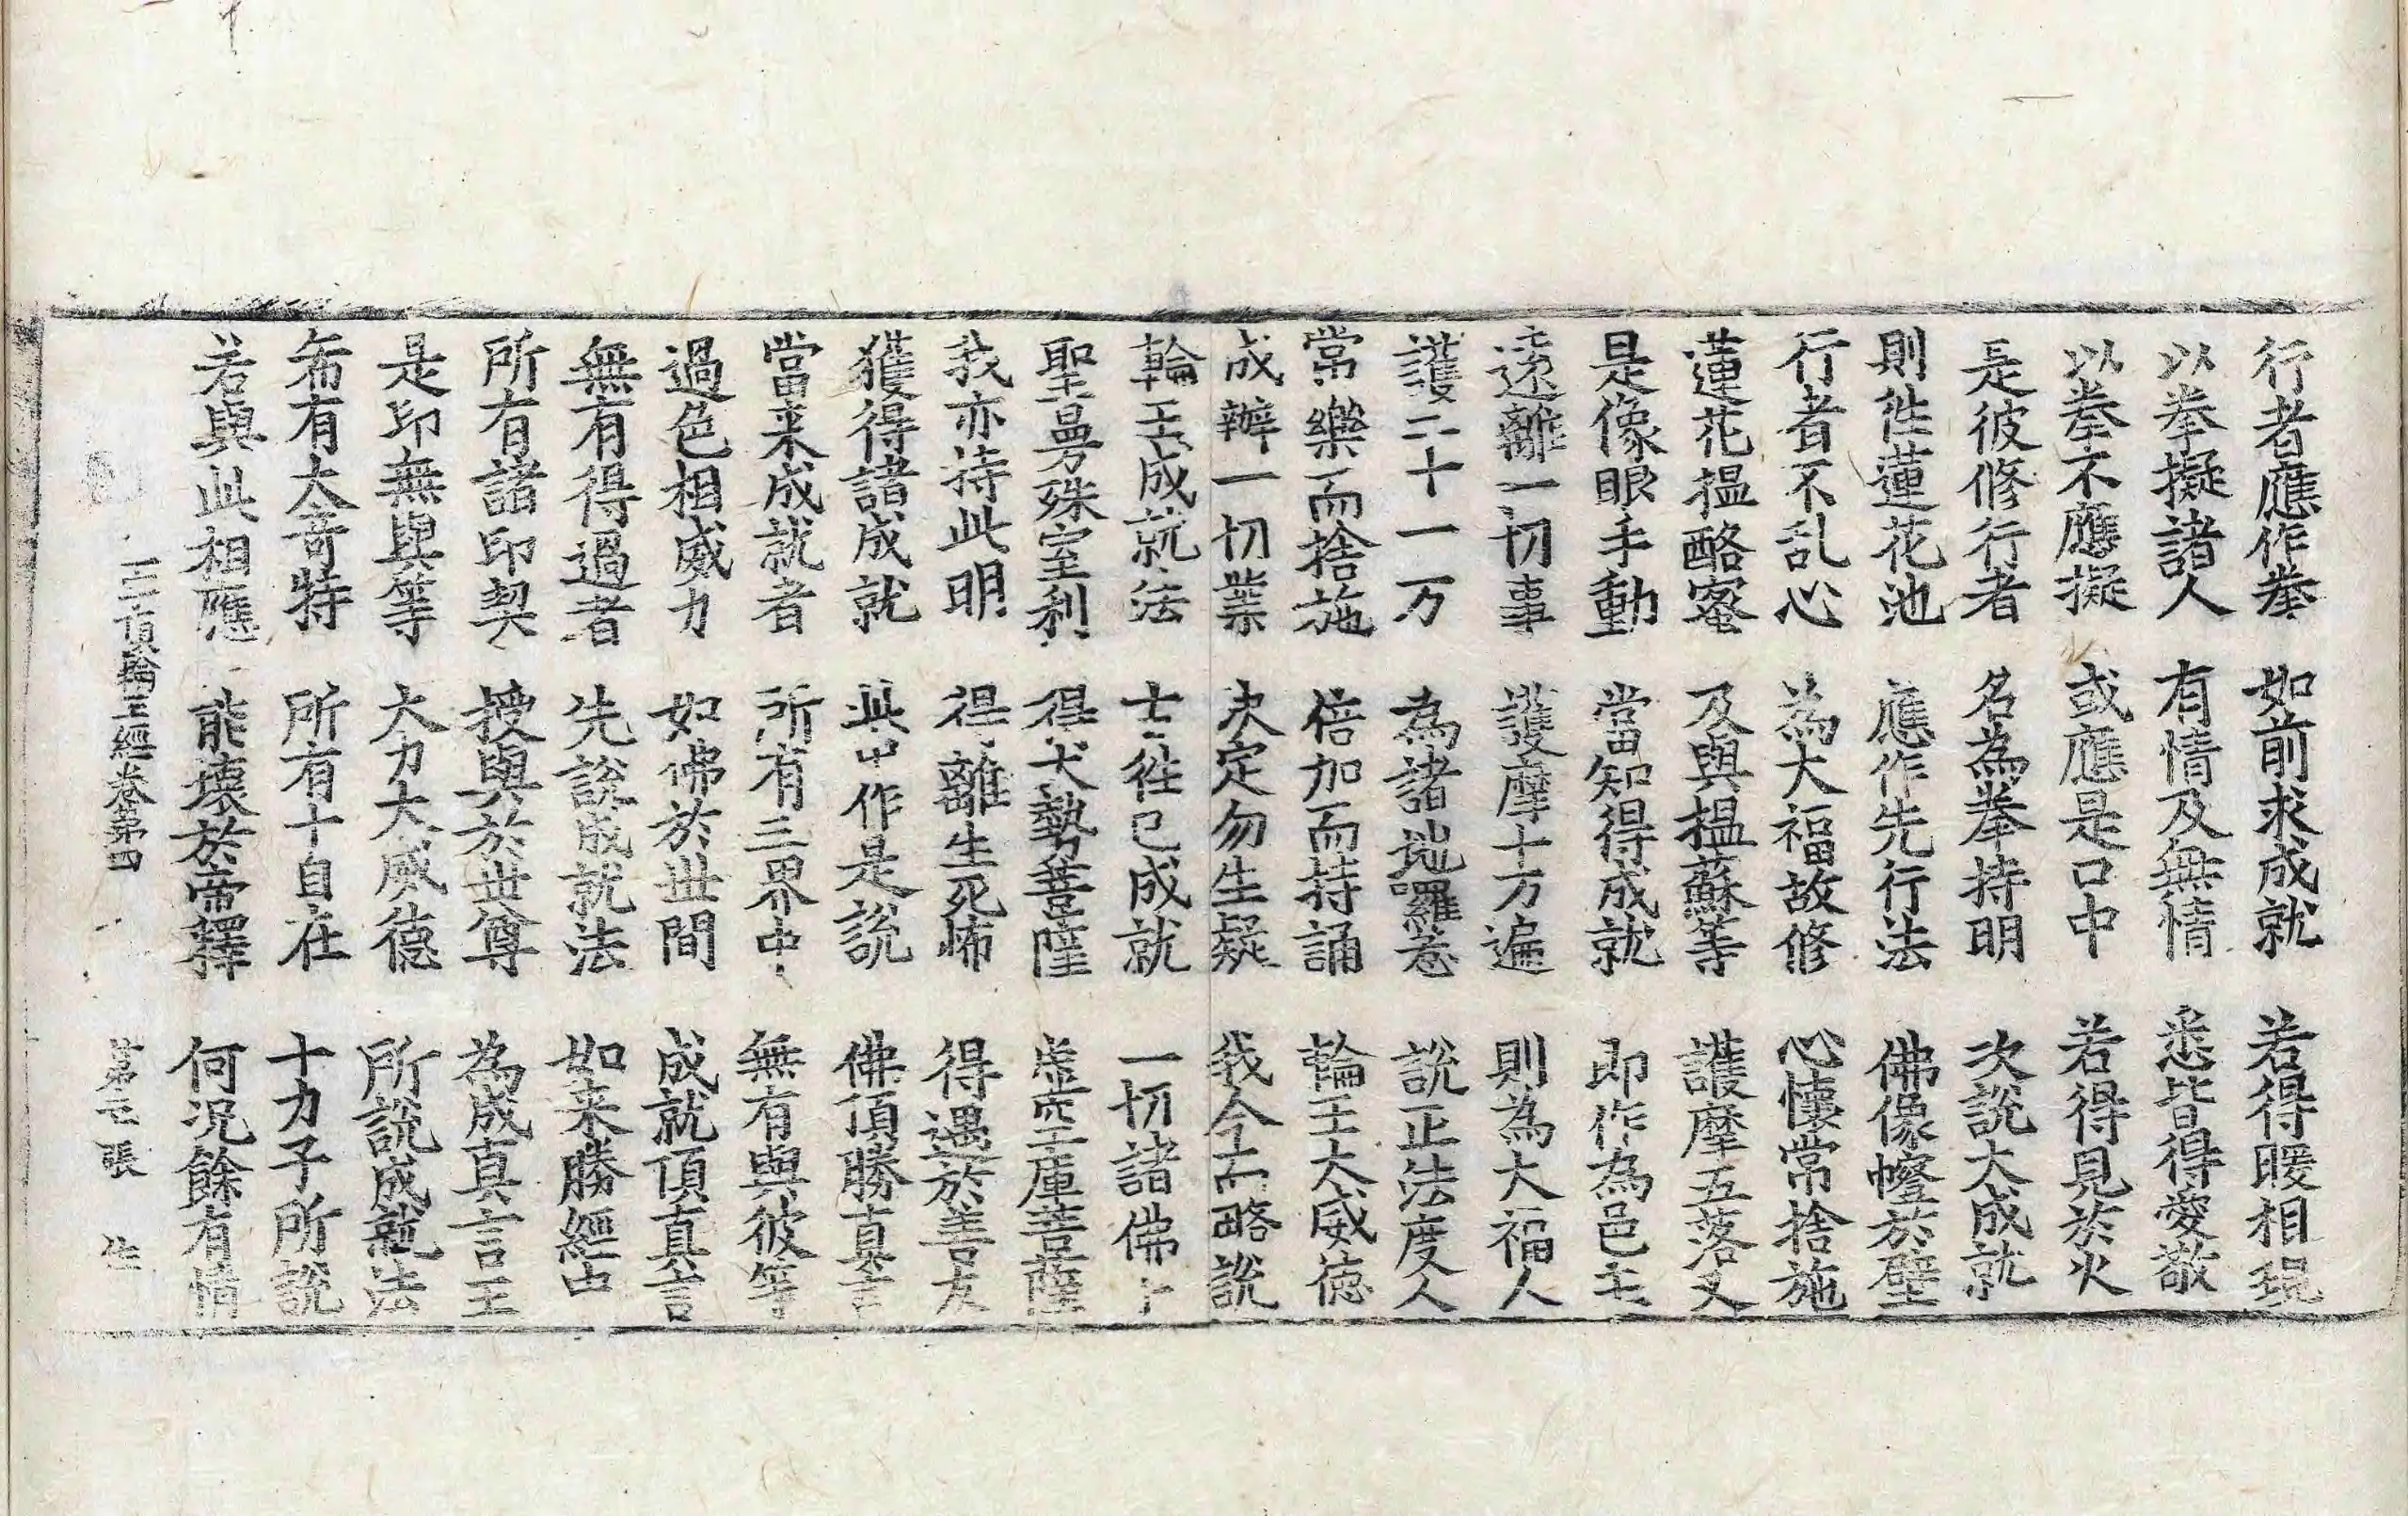 行者應作拳 如前求成就 若得暖相現
以拳擬諸人 有情及無情 悉皆得愛敬
以拳不應擬 或應是口中 若得見於火
是彼修行者 名為拳持明 次說大成就
則徃蓮花池 應作先行法 佛像幢於壁
行者不乱心 為大福故修 心懷常捨施
蓮花搵酪蜜 及與搵蘇等 護摩五落叉
是像眼手動 當知得成就 即作為邑主
遠離一切事 護摩十万遍 則為大福人
護二十一万 為諸地囉惹 說正法度人
常樂而捨施 倍加而持誦 輪王大威德
成辦一切業 决定勿生疑 我今而略說
輪王成就法 士徃已成就 一切諸佛
聖曼殊室利 得大勢菩薩 虛空庫菩薩
我亦持此明 得離生死怖 得遇於善友
獲得諸成就 此中作是說 佛頂勝真言
當来成就者 所有三界中 無有與彼等
過色相威力 如佛於世間 成就頂真言
無有得過者 先說成就法 如来勝經中
所有諸印契 授與於世尊 為成真言王
是印無與等 大力大威德 所說成就法
希有大奇特 所有十自在 十力子所說
若與此相應 能壞於帝釋 何况餘有情
頂輪王經卷第四 張